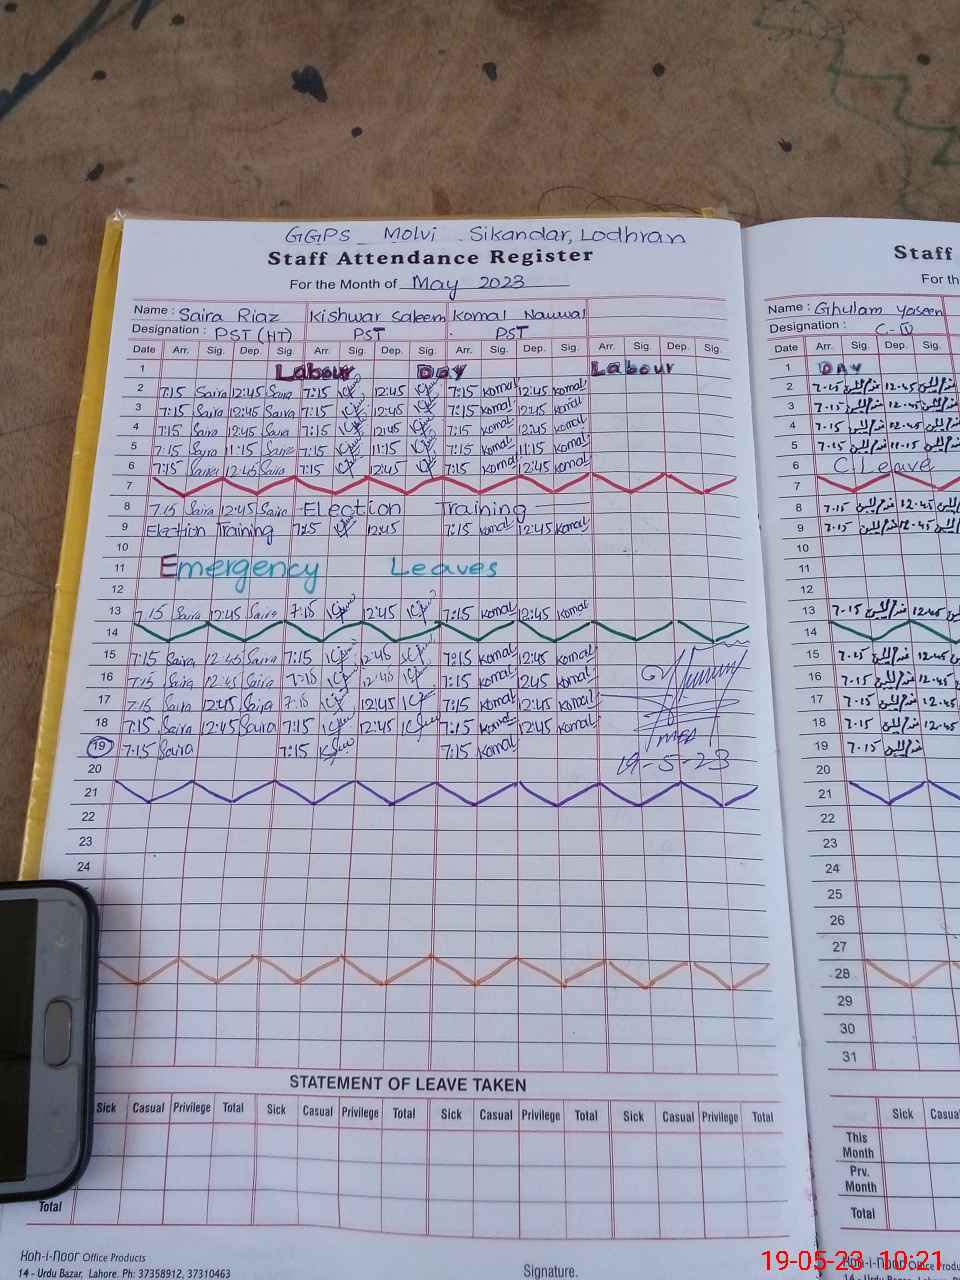 GGPS Molvi Sikandar, Lodhran
Staff Attendance Register
For the Month of May 2023
Name : Saira Riaz Kishwar Saleem Komal Nauwal
Designation : PST (HT) PST PST
Date Arr. Sig. Dep. Sig. Arr. Sig. Dep. Sig. Arr. Sig. Dep. Sig. Arr. Sig. Dep. Sig.
1 Labour Day Labour
2 7:15 Saira 12:45 Saira 7:15 12:45 7:15 Komal 12:45 Komal
3 7:15 Saira 12:45 Saira 7:15 12:45 7:15 Komal 12:45 Komal
4 7:15 Saira 12:45 Saira 7:15 12:45 7:15 Komal 12:45 Komal
5 7:15 Saira 11:15 Saira 7:15 11:15 7:15 Komal 11:15 Komal
6 7:15 Saira 12:45 Saira 7:15 12:45 7:15 Komal 12:45 Komal
7
8 7:15 Saira 12:45 Saira Election Training
9 Election Training 7:15 12:45 7:15 Komal 12:45 Komal
10
11 Emergency Leaves
12
13 7:15 Saira 12:45 Saira 7:15 12:45 7:15 Komal 12:45 Komal
14
15 7:15 Saira 12:45 Saira 7:15 12:45 7:15 Komal 12:45 Komal
16 7:15 Saira 12:45 Saira 7:15 12:45 7:15 Komal 12:45 Komal
17 7:15 Saira 12:45 Saira 7:15 12:45 7:15 Komal 12:45 Komal
18 7:15 Saira 12:45 Saira 7:15 12:45 7:15 Komal 12:45 Komal
19 7:15 Saira 7:15 7:15 Komal
19-5-23
20
21
22
23
24
STATEMENT OF LEAVE TAKEN
Sick Casual Privilege Total Sick Casual Privilege Total Sick Casual Privilege Total Sick Casual Privilege Total
Total
Koh-i-Noor Office Products
14 - Urdu Bazar, Lahore. Ph: 37358912, 37310463
Signature.
Staff
For th
Name : Ghulam Yaseen
Designation : C-IV
Date Arr. Sig. Dep. Sig.
1 Day
2 7.15 12.45
3 7.15 12.45
4 7.15 12.45
5 7.15 11.15
6 C Leave
7
8 7.15 12.45
9 7.15 12.45
10
11
12
13 7.15 12.45
14
15 7.15 12.45
16 7.15 12.45
17 7.15 12.45
18 7.15 12.45
19 7.15
20
21
22
23
24
25
26
27
28
29
30
31
Sick Casua
This Month
Prv. Month
Total
19-05-23 10:21